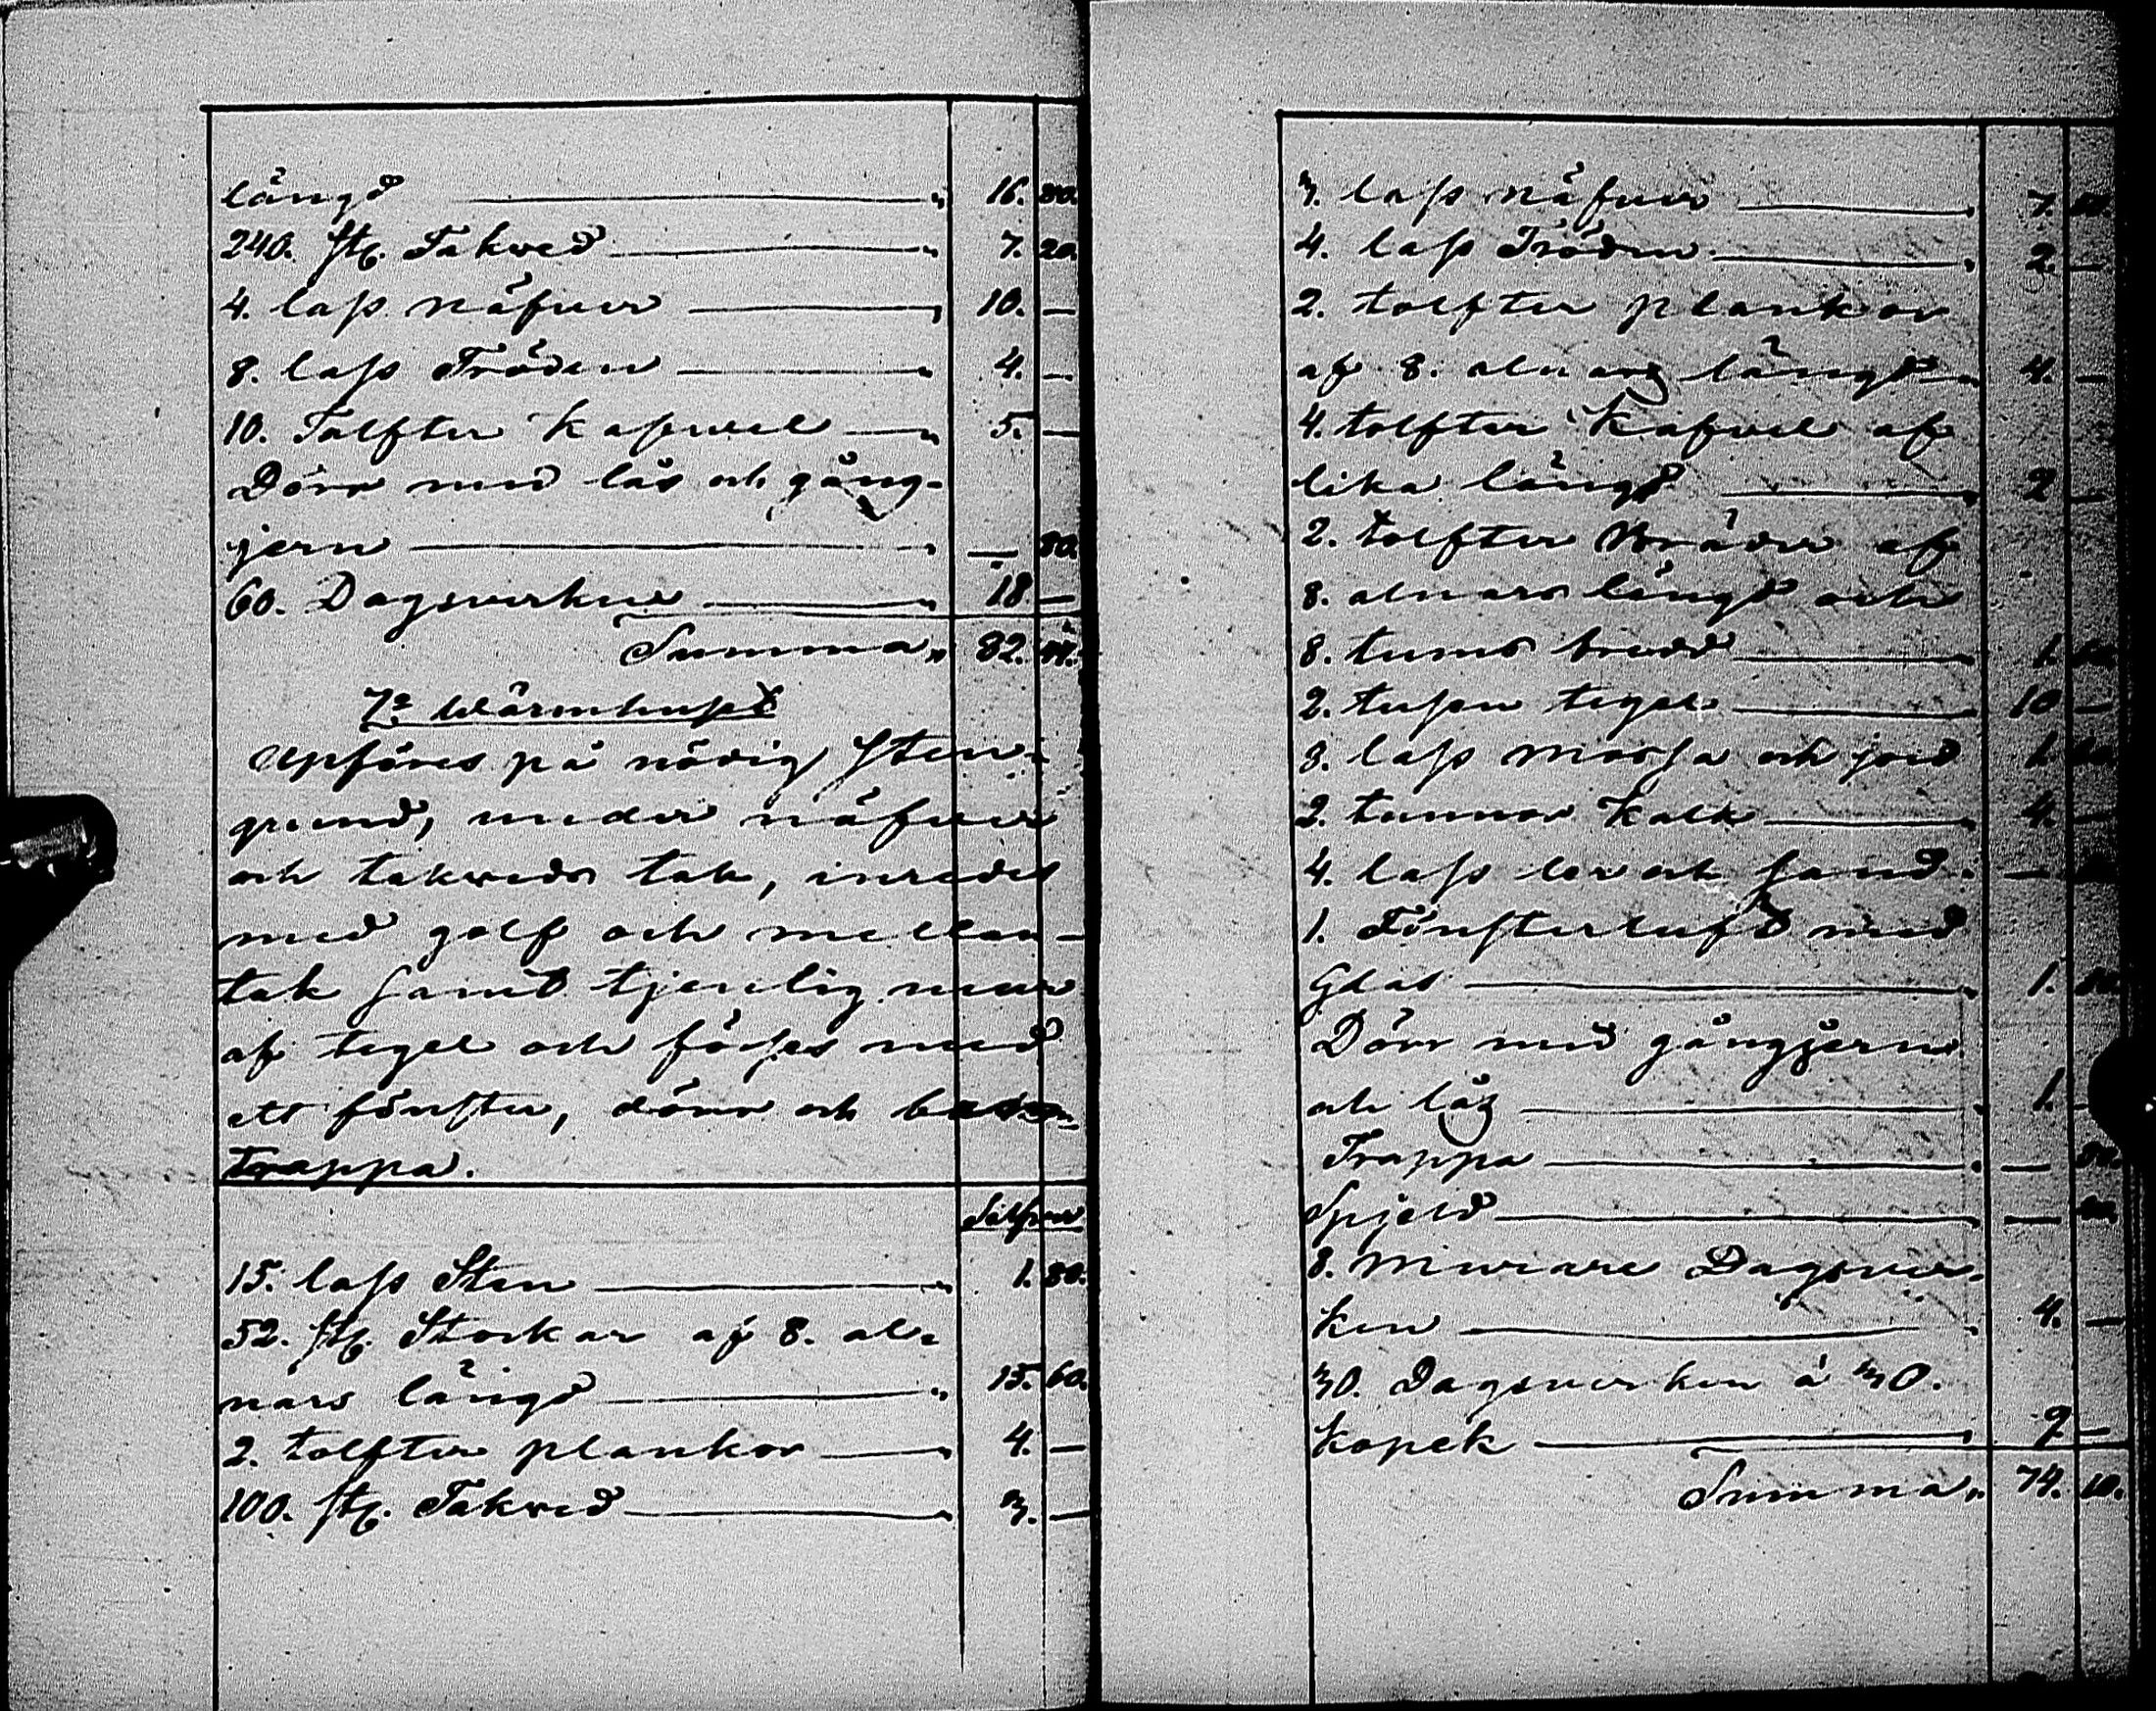 längd " 16. 80.
240. st. Takved " 7. 20.
4. lass näfver " 10. —
8. lass Tröden " 4. —
10. Tolfter Kafvel " 5. —
Dörr med lås och gång-
jern " — 80.
60. Dagsverken " 18 —
Summa " 82.
7º Wärmhuset
Upföres på nödig sten-
grund, under näfver
och takveds tak, inredes
med golf och mellan-
tak samt tjenlig mur
af tegel och förses med
ett fönster, dörr och
trappa.
Silfver
15. lass Sten " 1. 80.
52. st. Stockar af 8. al-
nars längd " 15. 60.
2. tolfter plankor " 4. —
100. st. Takved " 3. —
3. lass näfver " 7.
4. lass Tröden " 2. —
2. tolfter plankor
af 8. alnars längd " 4. —
4. tolfter Kafvel af
lika längd " 2 —
2. tolfter Bräder af
8. alnars längd och
8. tums bredd " 1.
2. tusen tegel " 10 —
3. lass mossa och jord 1.
2. tunnor Kalk " 4. —
4. lass ler och sand " —
1. Fönsterluft med
Glas " 1.
Dörr med gångjern
och lås " 1. —
Trappa " —
Spjeld " —
8. Murare Dagsver-
ken " 4. —
30. Dagsverken à 30.
Kopek " 9 —
Summa " 74. 10.